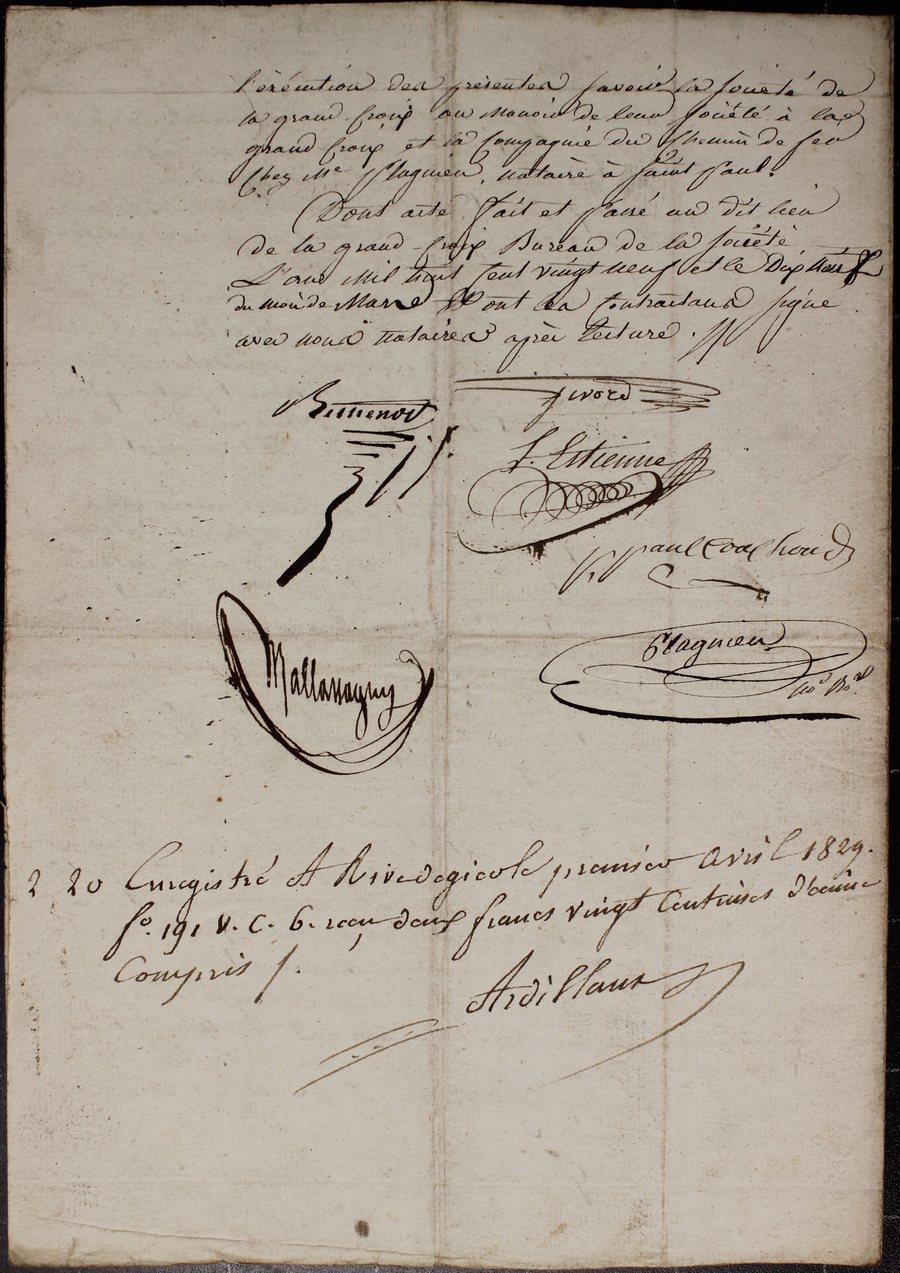 l'éxécution des présentes savoir la société de
la grand croix au Manoir de leur société à la
grand croix et la Compagnie du Chemin de fer
Chez Me Plagnieu, notaire à Saint Paul.
Dont acte fait et passé au dit lieu
de la grand-croix Bureau de la société
L'an mil huit cent vingt neuf et le Dix huit
du mois de Mars et ont les Contractans signé
avec nous notaires après lecture.
givord
L. Estienne
p. paul Coulhoud
Mallassagny
Plagnieu
nore Ral
2 20 Enregistré A Rivedegierle premier avril 1829.
fo. 191 V. C. 6. recu deux francs vingt Centimes dixme
Compris
Ardillaux